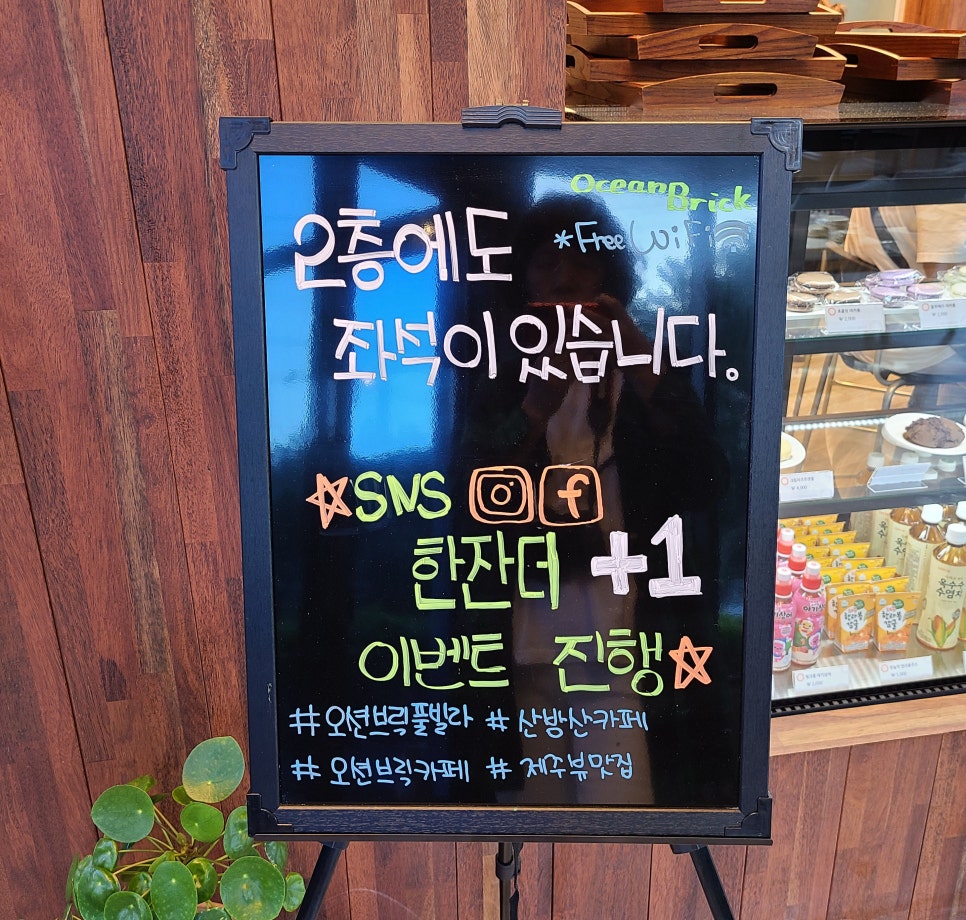 Ocean Brick
*Free WiFi
2층에도
좌석이 있습니다.
☆SNS
한잔더 +1
이벤트 진행☆
#오션브릭풀빌라 #산방산카페
#오션브릭카페 #제주뷰맛집
옥수수
수염차